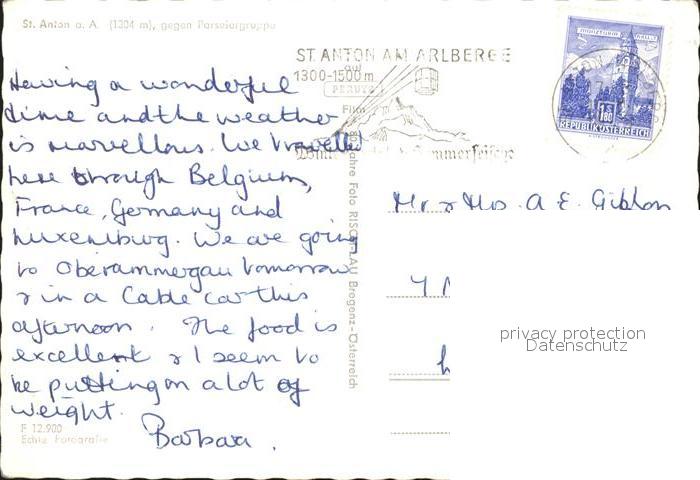 St. Anton a. A. (1304 m), gegen Parseiergruppe
ST. ANTON AM ARLBERG
1300-1500 m
PERUTZ
Film
REPUBLIK ÖSTERREICH
Having a wonderful
time and the weather
is marvellous. We travelled
here through Belgium,
France, Germany and
Luxemburg. We are going
to Oberammergau tomorrow
& in a Cable car this
afternoon. The food is
excellent & I seem to
be putting on a lot of
weight.
Barbara.
F 12.900
Echte Fotografie
Jahre Foto RISCH-LAU Bregenz-Österreich
Mr & Mrs. A. E. Gibbon
privacy protection
Datenschutz